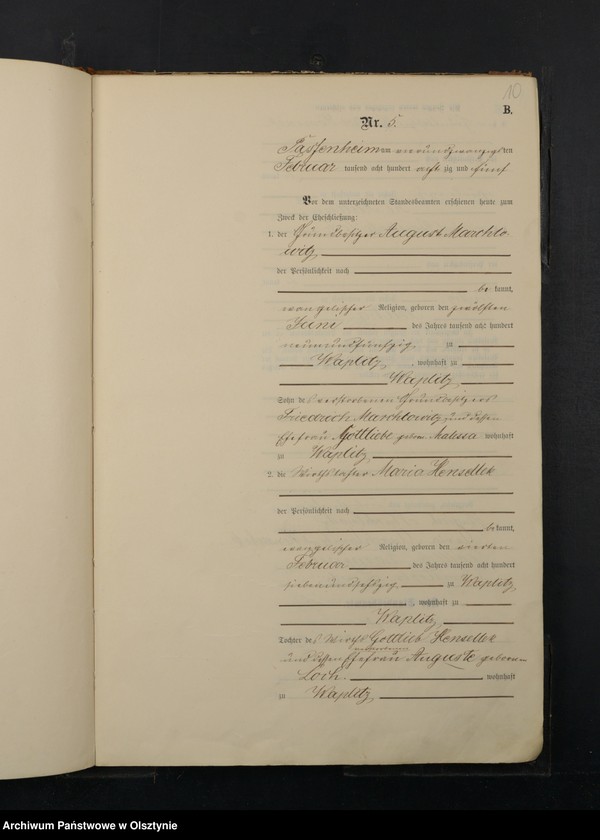 10
B.
Nr. 5.
Passenheim am vierundzwanzigsten
Februar tausend acht hundert achtzig und fünf
Vor dem unterzeichneten Standesbeamten erschienen heute zum
Zweck der Eheschließung:
1. der Grundbesitzer August Marchlo
witz
der Persönlichkeit nach
bekannt,
evangelischer Religion, geboren den zwölften
Juni des Jahres tausend acht hundert
neunundfünfzig zu
Waplitz, wohnhaft zu
Waplitz
Sohn des verstorbenen Grundbesitzers
Friedrich Marchlowitz und dessen
Ehefrau Gottliebe geborn. wohnhaft
zu Waplitz
2. die Wirthstochter Maria Hensellek
der Persönlichkeit nach
bekannt,
evangelischer Religion, geboren den vierten
Februar des Jahres tausend acht hundert
siebenundsechzig zu Waplitz
, wohnhaft zu
Waplitz,
Tochter des Wirths Gottlieb Hensellek
und dessen verstorbenen Ehefrau Auguste geboren
Loch. wohnhaft
zu Waplitz
Archiwum Państwowe w Olsztynie